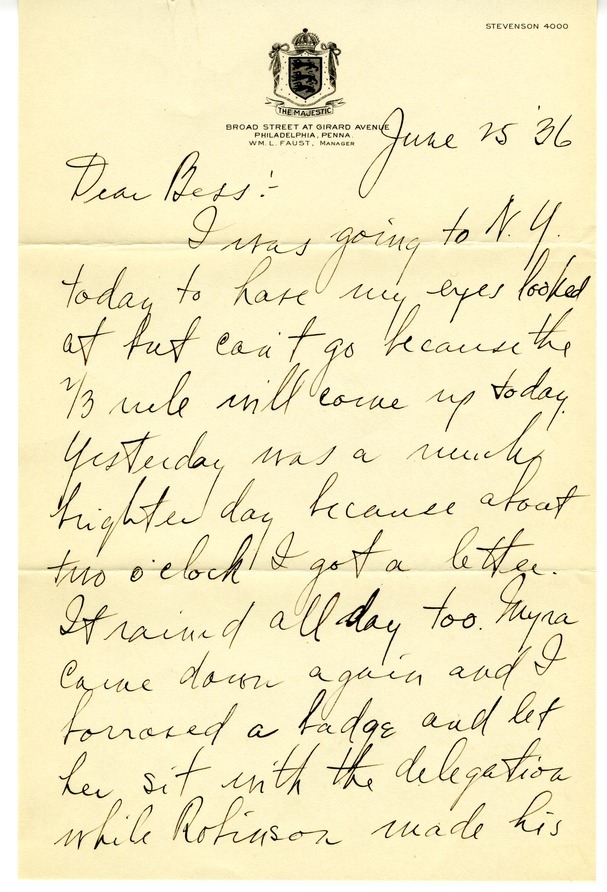 STEVENSON 4000
THE MAJESTIC
BROAD STREET AT GIRARD AVENUE
PHILADELPHIA, PENNA.
WM. L. FAUST, MANAGER
June 25 '36
Dear Bess:-
I was going to N.Y.
today to have my eyes looked
at but can't go because the
2/3 rule will come up today.
Yesterday was a much
brighter day because about
two o'clock I got a letter.
It rained all day too. Myra
came down again and I
borrowed a badge and let
her sit with the delegation
while Robinson made his